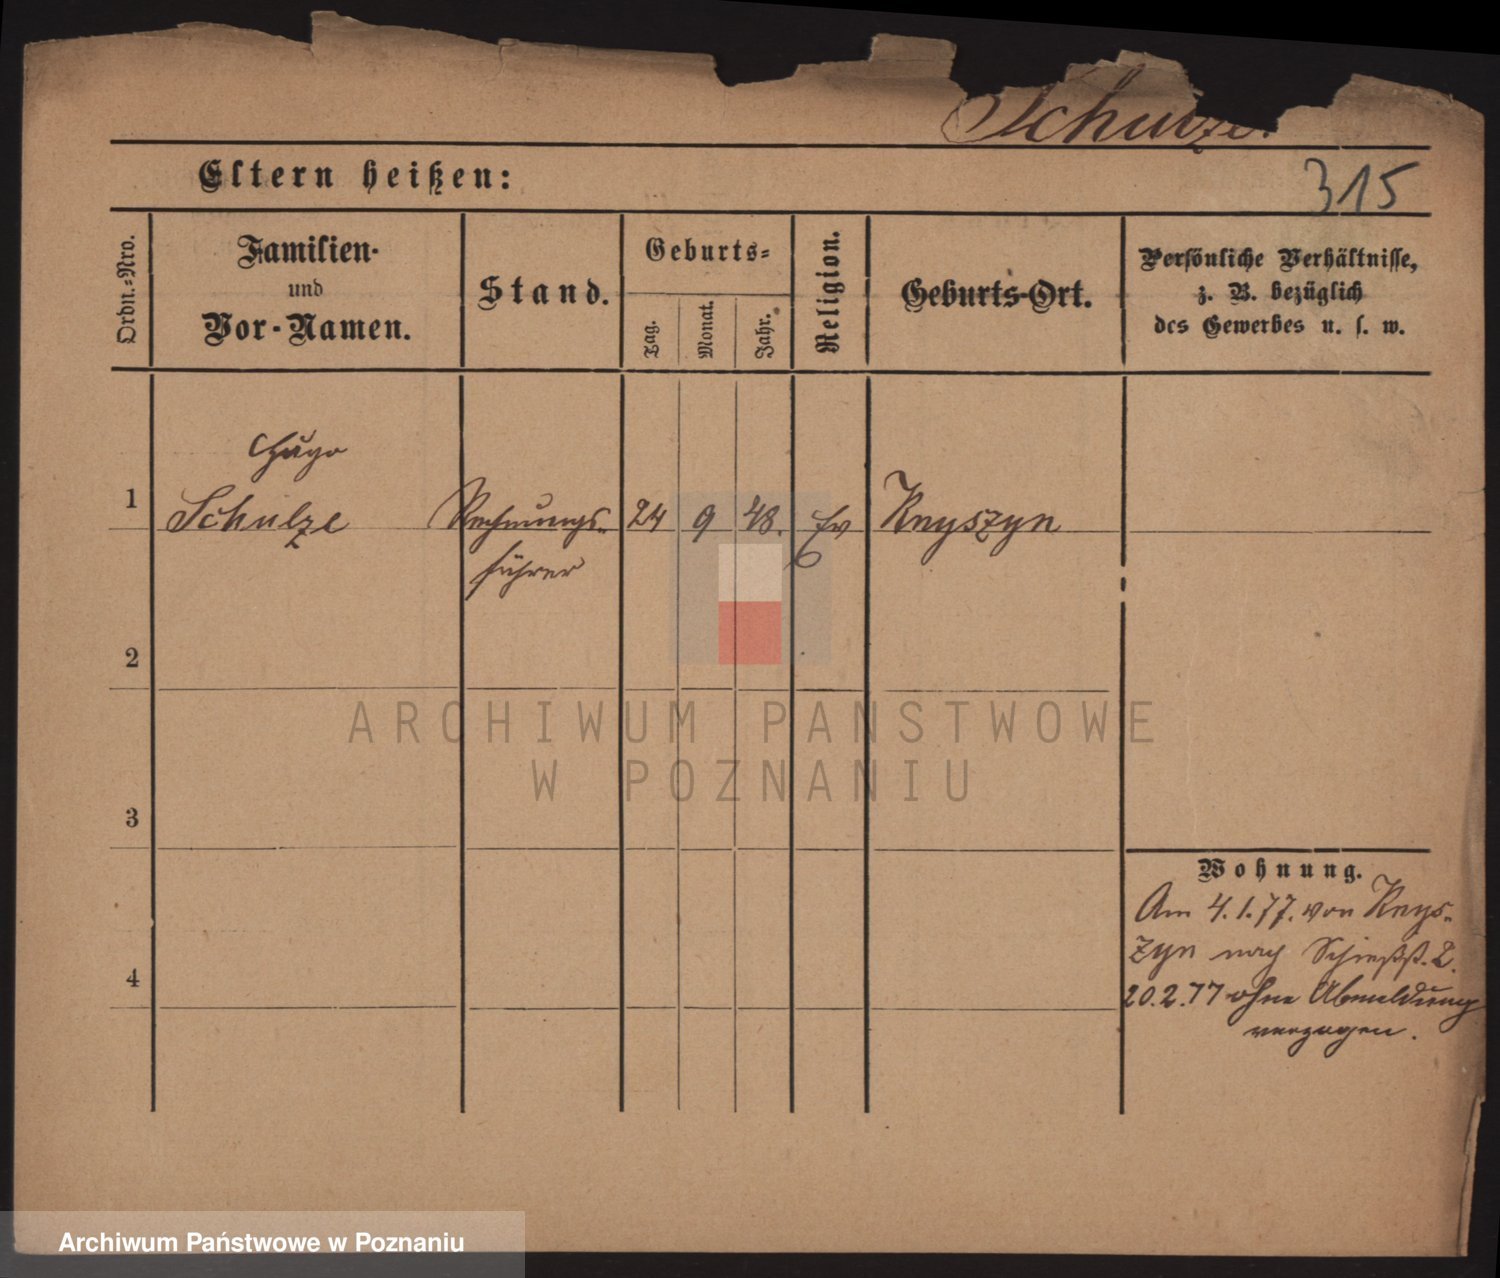 Schulze.
Eltern heißen:
315
Ordn.-Nro.
Familien-
und
Vor-Namen.
Stand.
Geburts-
Tag.
Monat.
Jahr.
Religion.
Geburts-Ort.
Persönliche Verhältnisse,
z. B. bezüglich
des Gewerbes u. s. w.
Hugo
1 Schulze Rechnungs- 24 9 48. Ev Knyszyn
führer
2
ARCHIWUM PAŃSTWOWE
W POZNANIU
3
Wohnung.
Am 4.1.77. von Knys-
zyn nach Schießst. 2.
4
20.2.77 ohne Abmeldung
verzogen.
Archiwum Państwowe w Poznaniu